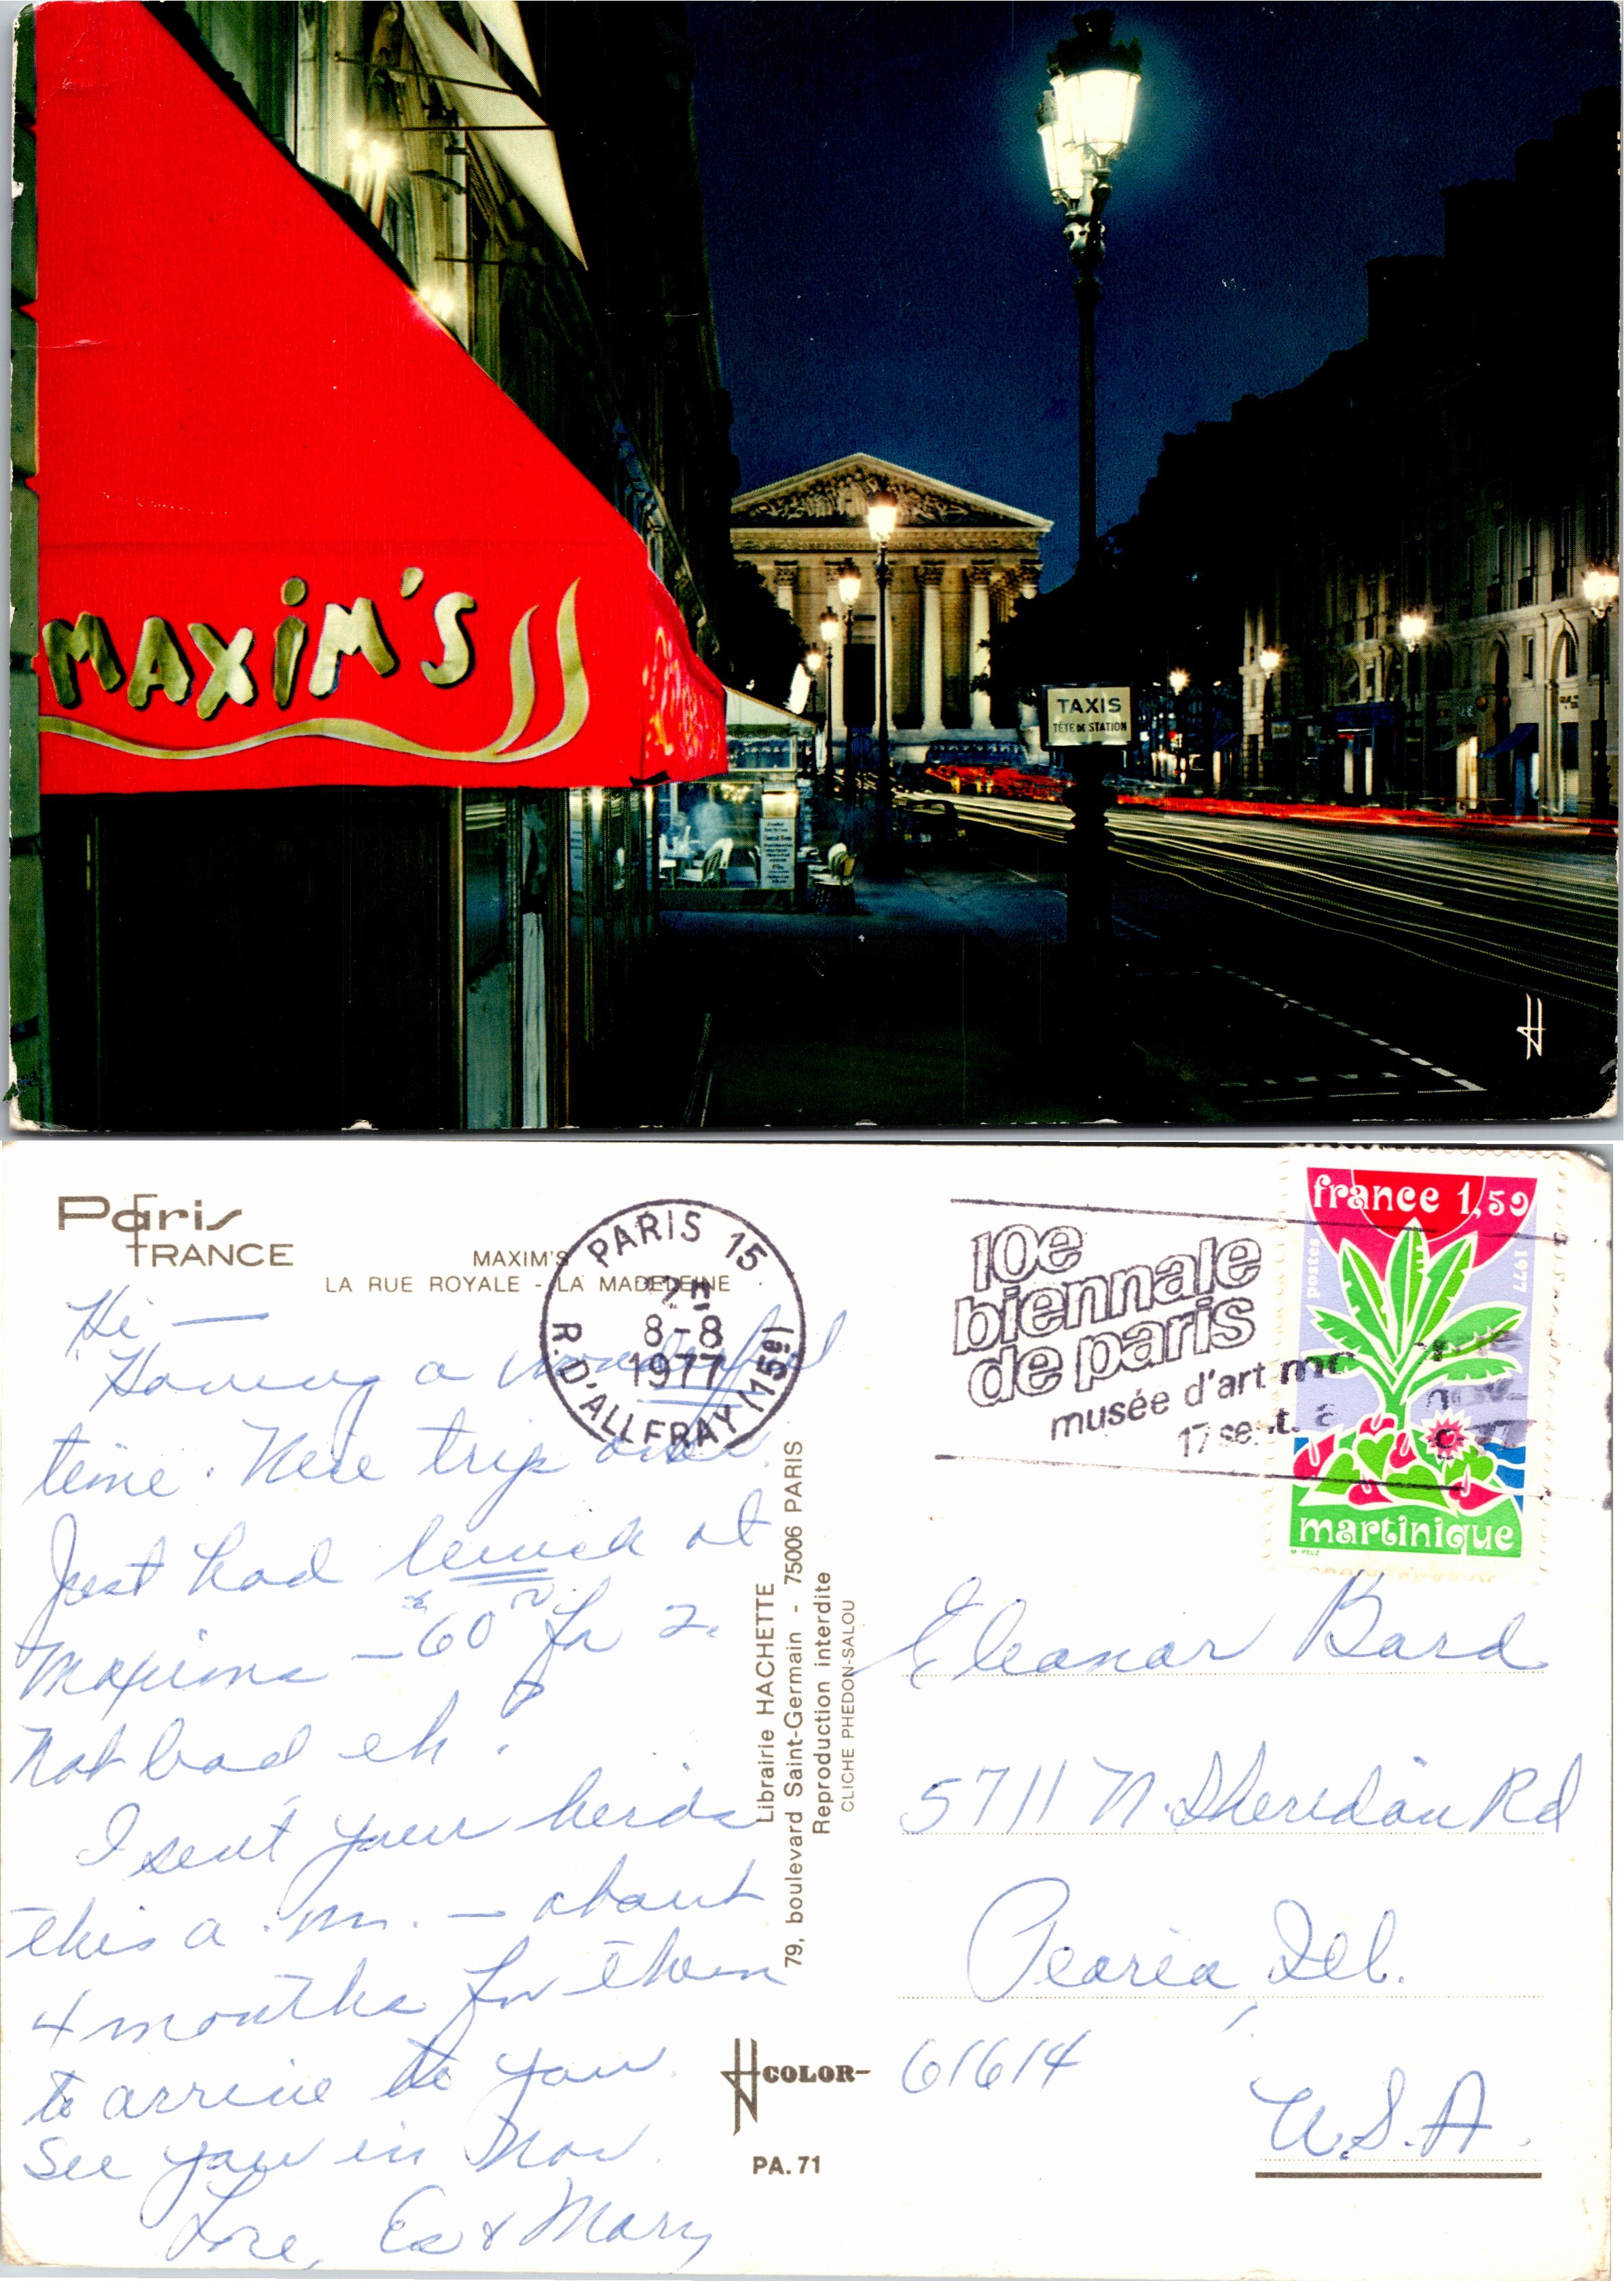 MAXIM'S
TAXIS
TÊTE DE STATION
Paris
FRANCE
MAXIM'S
LA RUE ROYALE - LA MADELEINE
PARIS 15
8-8
1977
R.D'ALLERAY (15e)
10e
biennale
de paris
musée d'art mo
17 sept.
france 1,50
postes
1977
martinique
M. PELZ
Hi —
Having a wonderful
time. Nice trip over.
Just had lunch at
Maxims - 60 for 2.
Not bad eh?
I sent your
this a.m. - about
4 months for them
to arrive to you.
See you in Nov.
Love, Es & Mary
Librairie HACHETTE
79, boulevard Saint-Germain - 75006 PARIS
Reproduction interdite
CLICHE PHEDON-SALOU
COLOR-
PA. 71
Eleanor Bard
5711 N. Sheridan Rd
Peoria, Ill.
61614
U.S.A.